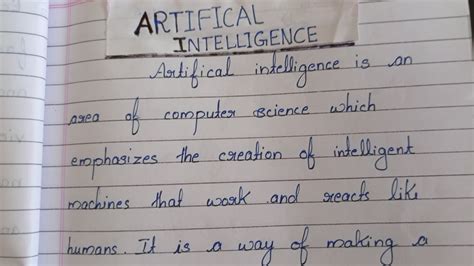 ARTIFICAL
INTELLIGENCE
Artifical intelligence is an
area of computer science which
emphasizes the creation of intelligent
machines that work and reacts like
humans. It is a way of making a